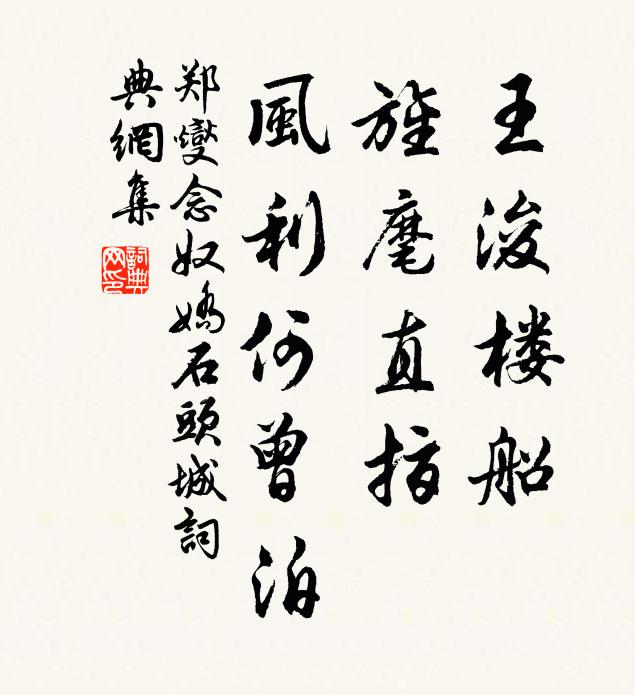 王浚楼船
旌麾直指
風利何曾泊
郑燮念奴嬌石頭城詞
典網集
詞典
网印